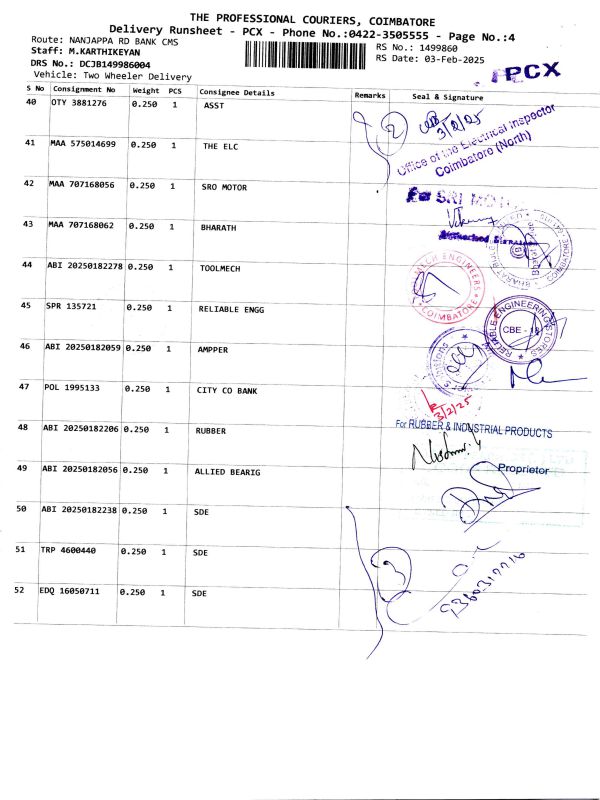 THE PROFESSIONAL COURIERS, COIMBATORE
Delivery Runsheet - PCX - Phone No.:0422-3505555 - Page No.:4
Route: NANJAPPA RD BANK CMS
RS No.: 1499860
Staff: M.KARTHIKEYAN
RS Date: 03-Feb-2025
DRS No.: DCJB149986004
PCX
Vehicle: Two Wheeler Delivery
S No Consignment No Weight PCS Consignee Details Remarks Seal & Signature
40 OTY 3881276 0.250 1 ASST
2
3/2/25
Office of the Electrical Inspector
Coimbatore (North)
41 MAA 575014699 0.250 1 THE ELC
42 MAA 707168056 0.250 1 SRO MOTOR
For SRI
43 MAA 707168062 0.250 1 BHARATH
44 ABI 20250182278 0.250 1 TOOLMECH
MECH ENGINEERS
COIMBATORE
45 SPR 135721 0.250 1 RELIABLE ENGG
RELIABLE ENGINEERING STORES
CBE - 18
46 ABI 20250182059 0.250 1 AMPPER
47 POL 1995133 0.250 1 CITY CO BANK
3/2/25
48 ABI 20250182206 0.250 1 RUBBER
For RUBBER & INDUSTRIAL PRODUCTS
Proprietor
49 ABI 20250182056 0.250 1 ALLIED BEARIG
50 ABI 20250182238 0.250 1 SDE
51 TRP 4600440 0.250 1 SDE
3
52 EDQ 16050711 0.250 1 SDE